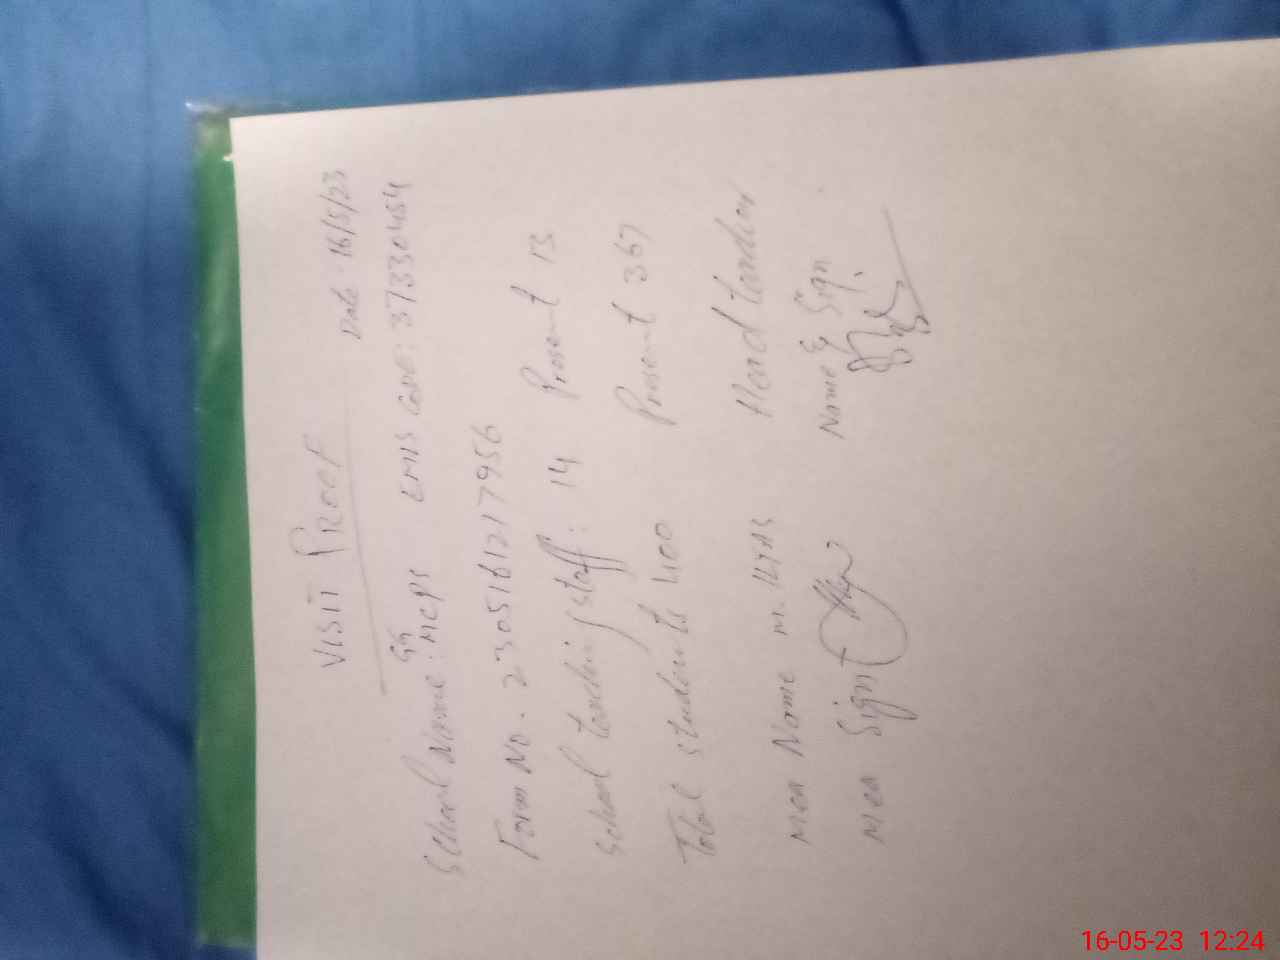 VISIT PROOF
Date - 16/5/23
School Name: MCPS EMIS Code: 37330454
Form No. 230516121 7956
School teaching staff: 14 Present 13
Total students 400 Present 367
Head teacher
MEA Name M. ILYAS Name & Sign
MEA Sign
16-05-23 12:24